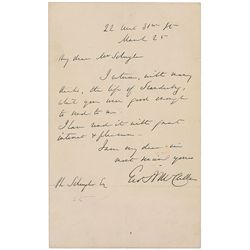 22 West 31st St
March 25
My dear Mr Schuyler
I return, with many
thanks, the life of
that you were good enough
to send to me.
I have read it with great
interest & pleasure.
I am my dear sir
most sincerely yours
Geo B McClellan
Schuyler Esq